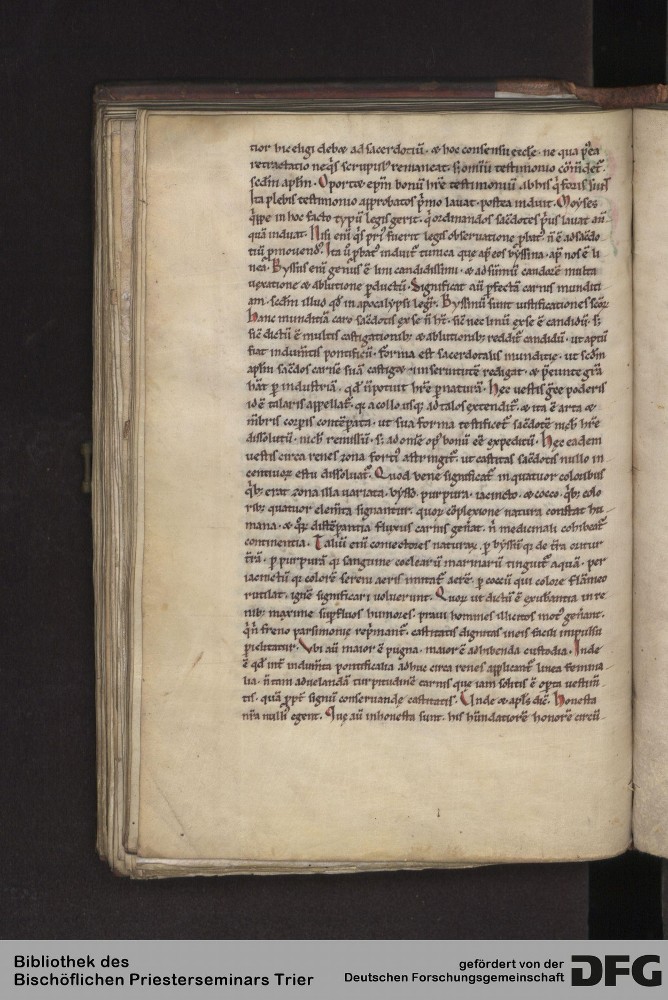 tior hic eligi debet ad sacerdotiū · & hoc consensu eccłe · ne qua p̄ea
retractatio neq̨s scrupulꝰ remaneat · s; omniū testimonio cōm̄det᷑ ·
sedm̄ apłm · Oportet ep̄m bonū hr̄e testimoniū ab his q̄ foris sunt
Ita plebis testimonio approbatos p̄mo lauat · postea induit · Moyses
q̄ppe in hoc facto typū legis gerit · q̄ ordinandos sac̄dotes p̄us lauat an̄
quā induat · Nisi eni q̨s pri᷑ fuerit legis obseruatione
tiū p̄mouendꝰ · Ita ū
nea · Byssus eni genus ē lini candidissimi · & ad sūmū candorē multa
uexatione & ablutione p̄ductū · Significat aū p̄fectā carnis mundici
am · sedm̄ illud qd̄ in apocalypsi legit᷑ · Byssinū sunt iustificationes scōꝝ
Hanc mundiciā caro sac̄dotis ex se n̄ ht̄ · sic̄ nec linū ex se ē candidū · s;
sic̄ dictū ē multis castigationib; & ablutionib; reddit᷑ candidū · ut aptū
fiat indum̄tis pontificū · forma est sacerdotalis mundicie · ut sedm̄
apłm sac̄dos carnē suā castiget · in seruitutē redigat · & p̄eunte grā
hāt p̄ industriā · qd̄ n̄ potuit hr̄e p̄ naturā · Hec uestis grece poderis
id ē talaris appellat᷑ · q̄ a collo usq; ad talos extendit᷑ · & ita ē arta &
m̄bris corp̄is contēp̄ata · ut sua forma testificet᷑ sac̄dotē nich̄ hr̄e
dissolutū · nich̄ remissū · s; ad om̄e op̄ꝰ bonū ee᷑ expeditū · Hec eadem
uestis circa renes zona forti᷑ astringit᷑ · ut castitas sac̄dotis nullo in
centiuoꝝ estu dissoluat᷑ · Quod bene significat᷑ in quatuor coloribus
q̄b; erat zona illa uariata · bysso · purpura · iacincto · & cocco · q̄b; colo
rib; quatuor elem̄ta signantur · quoꝝ cōplexione natura constat hu-
mana · & q̄ꝝ distēp̄antia fluxus carnis gen̄at · n̄ medicinali cohibeat᷑
continentia · Taliū eni coniectores naturaꝝ · p̄ byssū q̄ de t̄ra oritur
t̄rā · p̄ purpurā q̄ sanguine coclearū marinarū tinguit᷑ aquā · per
iacinctū q̄ colorē sereni aeris imitat᷑ aerē · p̄ coccū qui colore flāmeo
rutilat · ignē significari uoluerunt · Quoꝝ ut dictū ē exuberantia in re
nib; maxime sup̄fluos humores · praui homines illicitos motꝰ gen̄ant ·
q̄ n̄ freno parsimonie rep̄mant᷑ · castitatis dignitas
piclitatur · Vbi aū maior ē pugna · maior ē adhibenda custodia · Inde
ē qd̄ int̄ indum̄ta pontificalia adhuc circa renes applicant᷑ linea femina
lia · n̄ tam ad uelandā turpitudinē carnis que iam solitis ē op̄ta uestim̄
tis · quā p̄pt̄ signū conseruande castitatis · Unde & apłs dic̄ · Honesta
nr̄a nulliꝰ egent · Que aū inhonesta sunt · his habundatiorē honorē circū-
Bibliothek des
Bischöflichen Priesterseminars Trier
gefördert von der
Deutschen Forschungsgemeinschaft
DFG